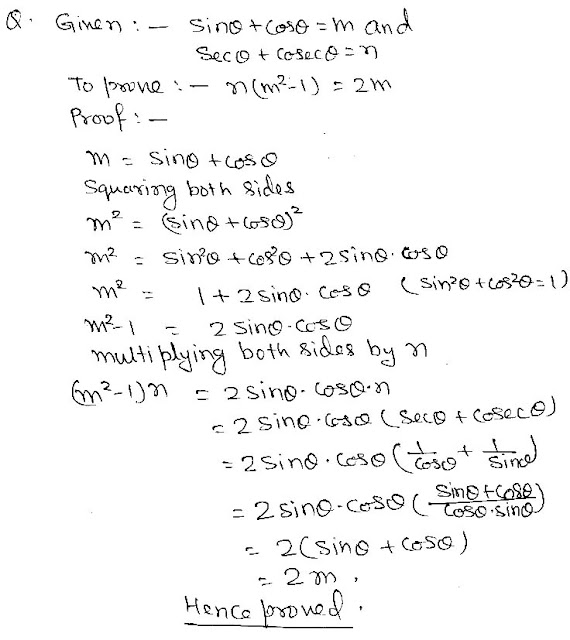 Q. Given :- sinθ + cosθ = m and
secθ + cosecθ = n
To prove :- n(m²-1) = 2m
Proof :-
m = sinθ + cosθ
Squaring both sides
m² = (sinθ + cosθ)²
m² = sin²θ + cos²θ + 2 sinθ. cosθ
m² = 1 + 2 sinθ. cosθ (sin²θ + cos²θ = 1)
m²-1 = 2 sinθ.cosθ
multiplying both sides by n
(m²-1)n = 2 sinθ. cosθ.n
= 2 sinθ.cosθ (secθ + cosecθ)
= 2 sinθ. cosθ (1/cosθ + 1/sinθ)
= 2 sinθ.cosθ (sinθ + cosθ/cosθ.sinθ)
= 2(sinθ + cosθ)
= 2m.
Hence proved.